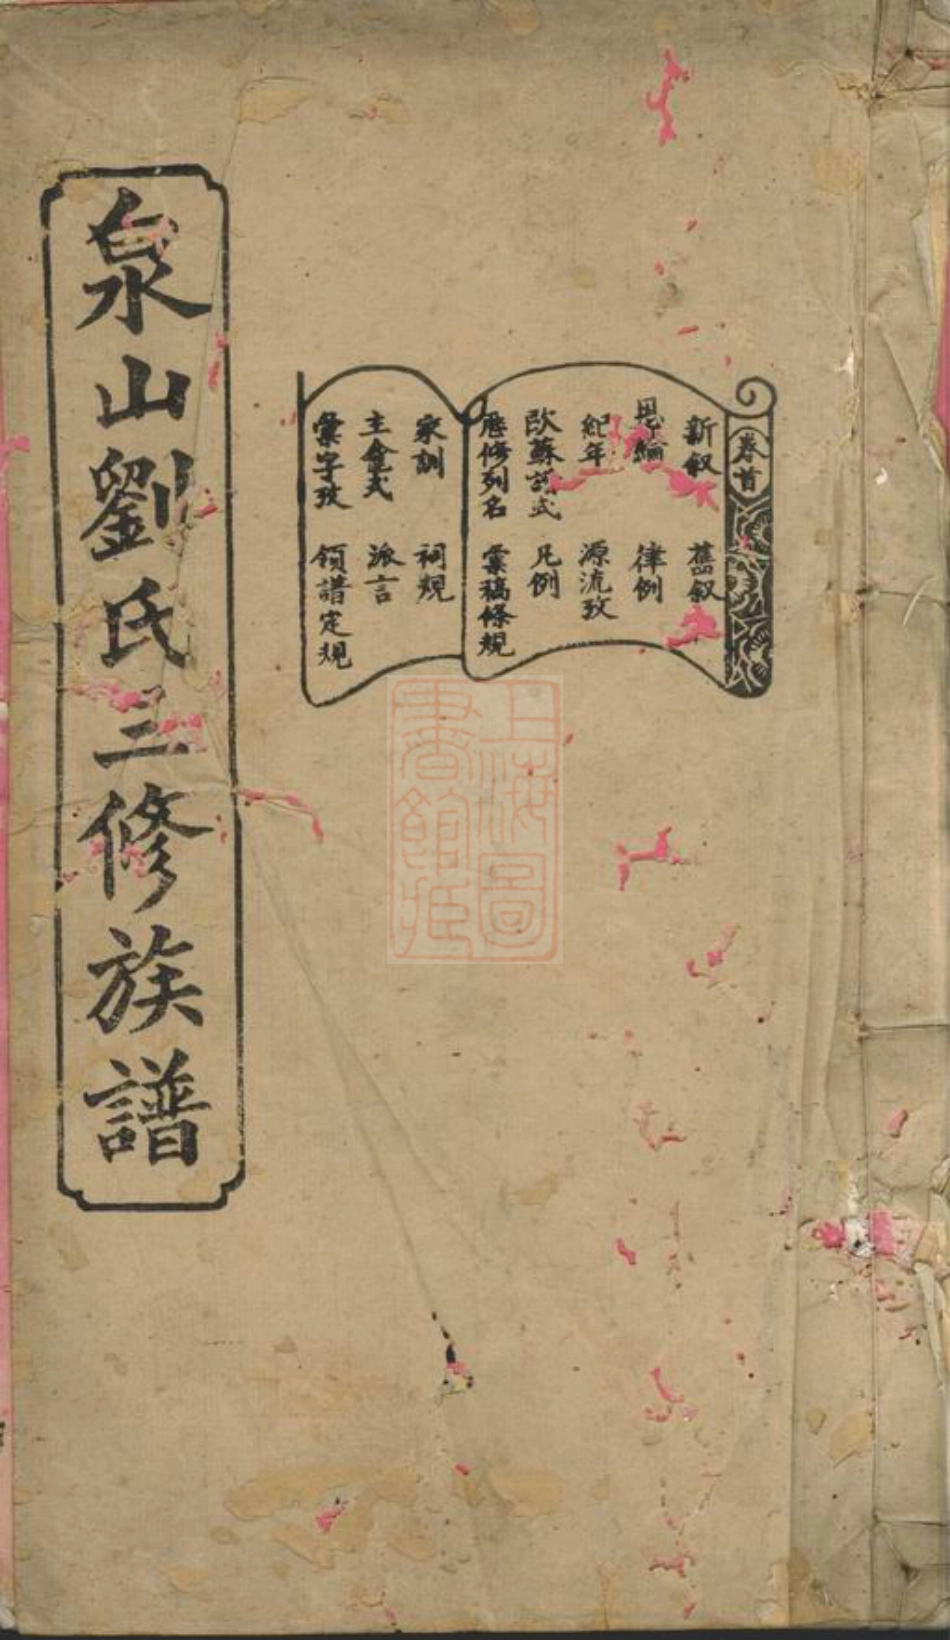 卷首
新叙 舊叙
恩綸 律例
紀年 源流攷
歐蘇譜式 凡例
歷修列名 彙稿條規
家訓 祠規
主龕式 派言
彙字攷 領譜定規
泉山劉氏三修族譜
上海圖
書館藏